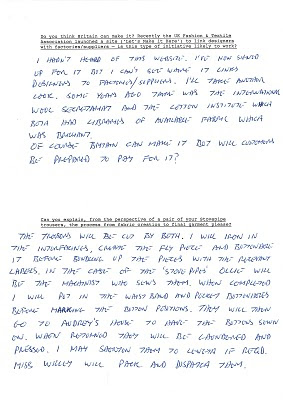 Do you think Britain can make it? Recently the UK Fashion & Textile
Association launched a site ('Let's Make it Here') to link designers
with factories/suppliers – is this type of initiative likely to work?
I HADN'T HEARD OF THIS WEBSITE. I'VE NOW SIGNED
UP FOR IT BUT I CAN'T SEE WHERE IT LINKS
DESIGNERS TO FACTORIES/SUPPLIERS. I'LL TAKE ANOTHER
LOOK. SOME YEARS AGO THERE WAS THE INTERNATIONAL
WOOL SECRETARIAT AND THE COTTON INSTITUTE WHICH
BOTH HAD LIBRARIES OF AVAILABLE FABRIC WHICH
WAS BRILLIANT.
OF COURSE BRITAIN CAN MAKE IT BUT WILL CUSTOMERS
BE PREPARED TO PAY FOR IT?
Can you explain, from the perspective of a pair of your Stovepipe
trousers, the process from fabric creation to final garment please?
THE TROUSERS WILL BE CUT BY BETH. I WILL IRON IN
THE INTERLININGS, CREATE THE FLY PIECE AND BUTTONHOLE
IT BEFORE BUNDLING UP THE PIECES WITH THE RELEVANT
LABELS. IN THE CASE OF THE 'STOVEPIPES' OLLIE WILL
BE THE MACHINIST WHO SEWS THEM. WHEN COMPLETED
I WILL PUT IN THE WAISTBAND AND POCKET BUTTONHOLES
BEFORE MARKING THE BUTTON POSITIONS. THEY WILL THEN
GO TO AUDREY'S HOUSE TO HAVE THE BUTTONS SEWN
ON. WHEN RETURNED THEY WILL BE LAUNDERED AND
PRESSED. I MAY SHORTEN THEM TO LENGTH IF REQ'D.
MISS WILLEY WILL PACK AND DISPATCH THEM.